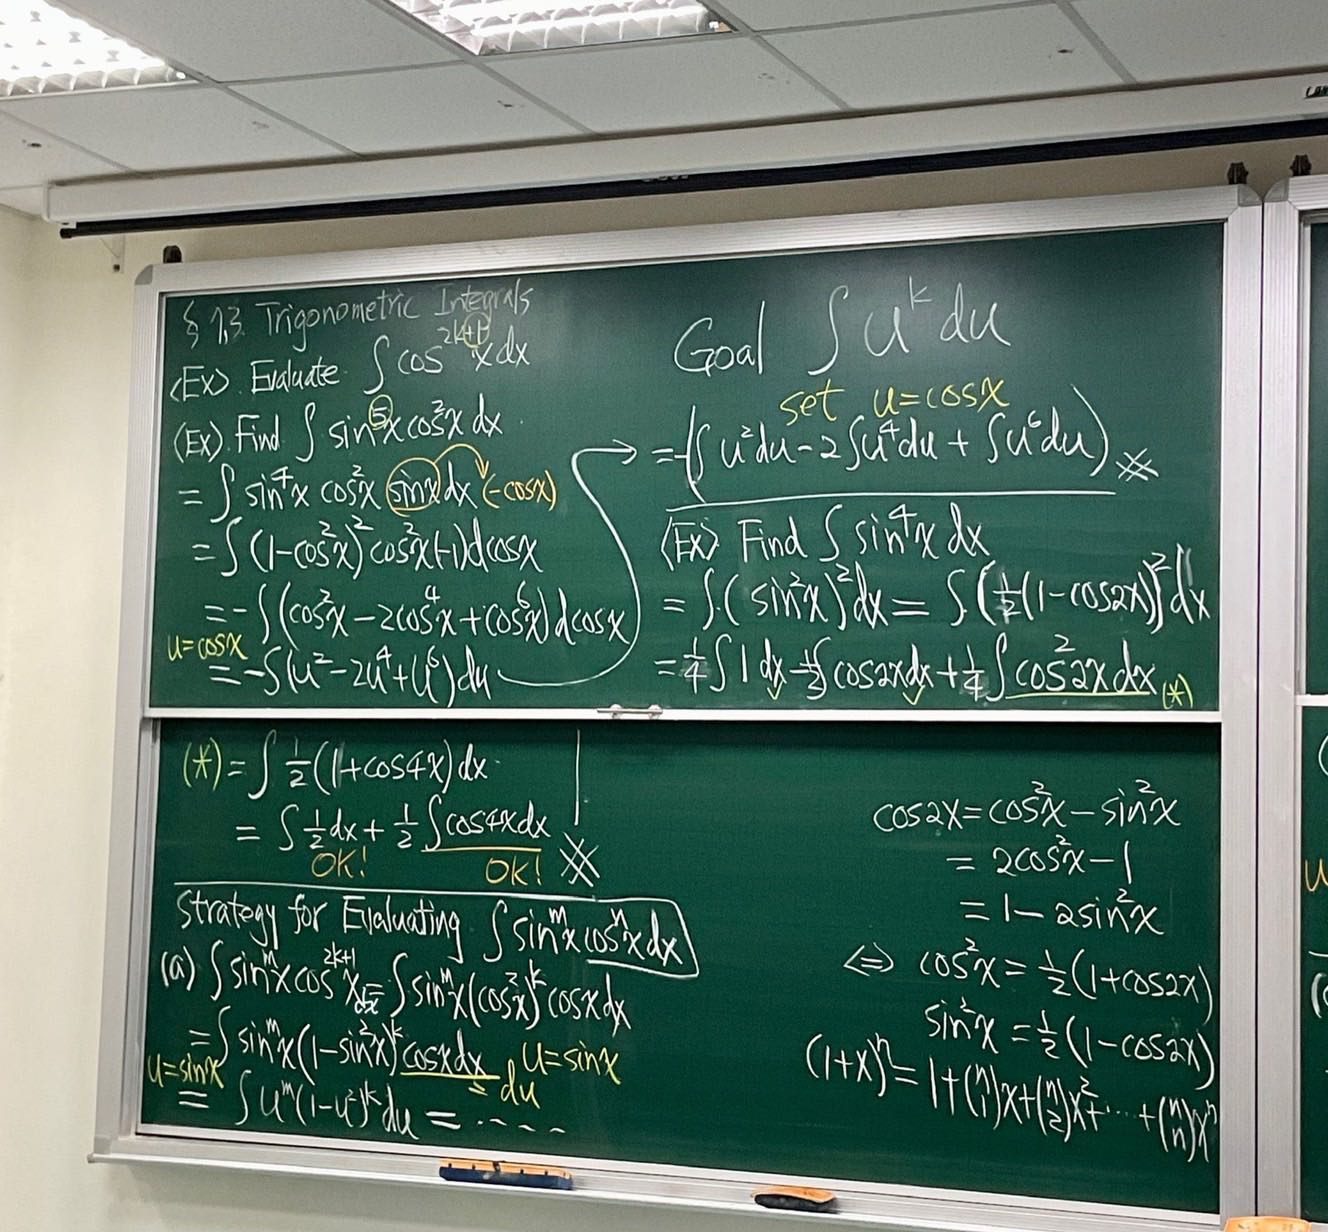 § 7.3. Trigonometric Integrals
<Ex>. Evaluate ∫ cos^{2k+1} x dx
<Ex>. Find ∫ sin^5 x cos^2 x dx
= ∫ sin^4 x cos^2 x sinx dx (-cosx)
= ∫ (1-cos^2 x)^2 cos^2 x (-1) dcosx
= -∫ (cos^2 x - 2cos^4 x + cos^6 x) dcosx
u=cosx
= -∫ (u^2 - 2u^4 + u^6) du
Goal ∫ u^k du
set u=cosx
= -(∫ u^2 du - 2∫u^4 du + ∫u^6 du)
<Ex> Find ∫ sin^4 x dx
= ∫ (sin^2 x)^2 dx = ∫ (1/2 (1-cos2x))^2 dx
= 1/4 ∫ 1 dx - 1/2 ∫ cos2x dx + 1/4 ∫ cos^2 2x dx (*)
(*) = ∫ 1/2 (1+cos4x) dx
= ∫ 1/2 dx + 1/2 ∫ cos4x dx
OK! OK!
Strategy for Evaluating ∫ sin^m x cos^n x dx
(a) ∫ sin^m x cos^{2k+1} x dx = ∫ sin^m x (cos^2 x)^k cosx dx
= ∫ sin^m x (1-sin^2 x)^k cosx dx u=sinx
u=sinx = du
= ∫ u^m (1-u^2)^k du = ....
cos2x = cos^2 x - sin^2 x
= 2cos^2 x - 1
= 1 - 2sin^2 x
⇔ cos^2 x = 1/2 (1+cos2x)
sin^2 x = 1/2 (1-cos2x)
(1+x)^n = 1 + (n 1)x + (n 2)x^2 + ... + (n n)x^n